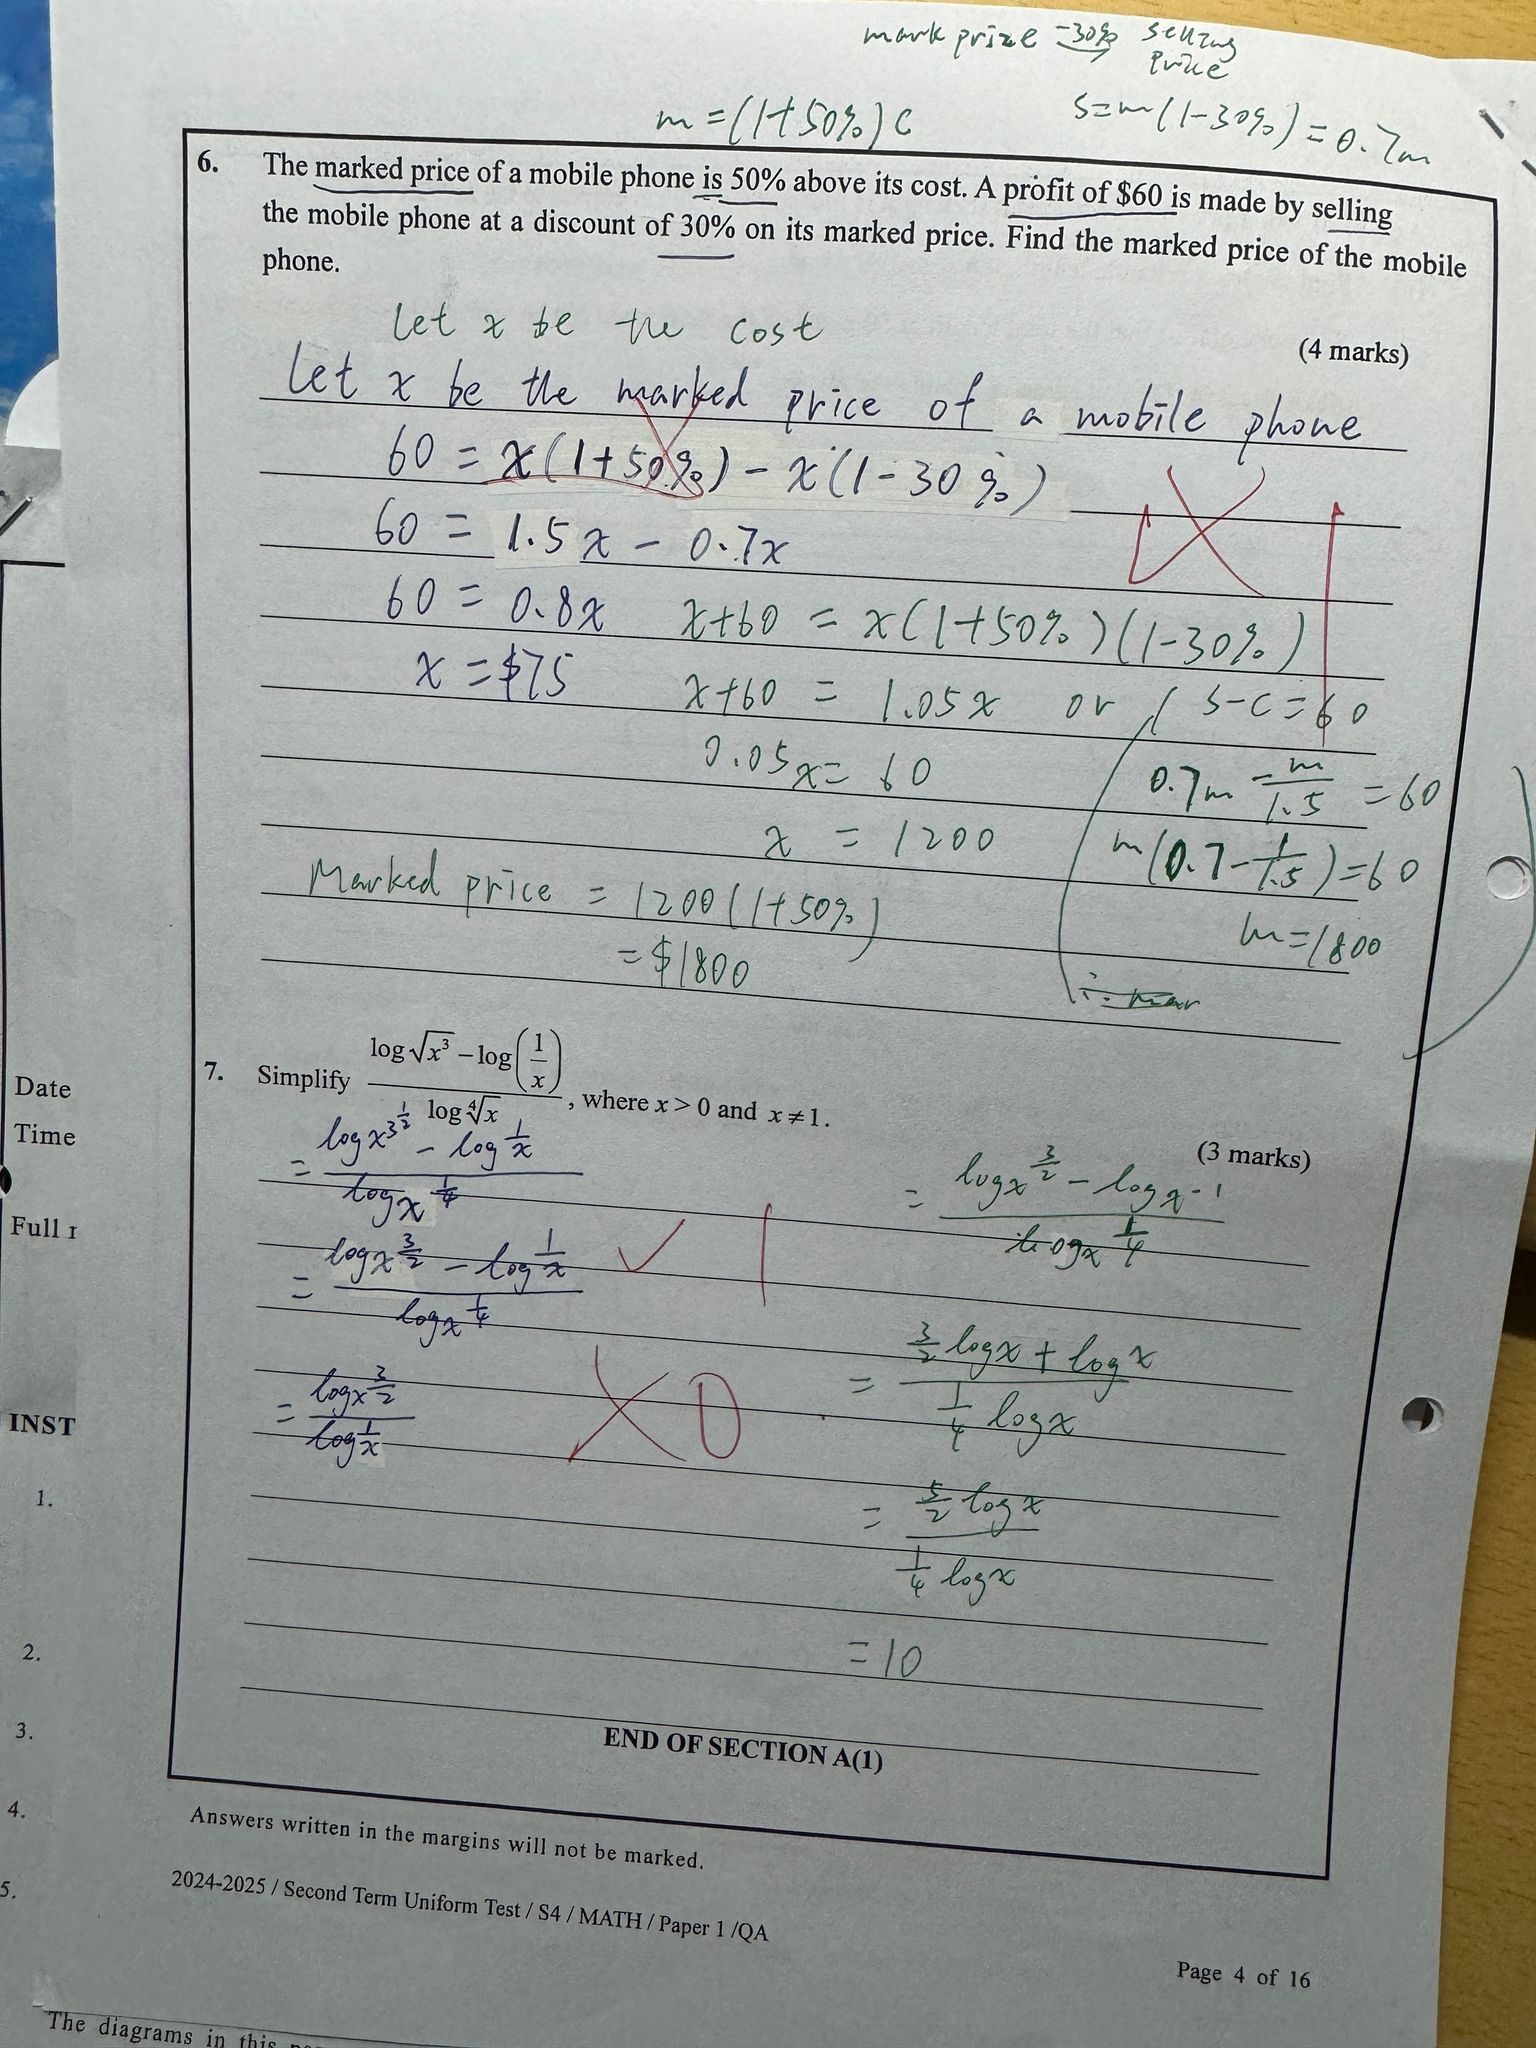 mark prize -30% selling
→ price
m = (1+50%) C
S=m(1-30%) = 0.7m
6. The marked price of a mobile phone is 50% above its cost. A profit of $60 is made by selling
the mobile phone at a discount of 30% on its marked price. Find the marked price of the mobile
phone.
(4 marks)
Let x be the cost
Let x be the marked price of a mobile phone
60 = x(1+50%) - x(1-30%)
60 = 1.5x - 0.7x
60 = 0.8x
x = $75
x+60 = x(1+50%)(1-30%)
x+60 = 1.05x or
0.05x = 60
x = 1200
Marked price = 1200(1+50%)
= $1800
S-C=60
0.7m - m/1.5 = 60
m(0.7 - 1/1.5) = 60
m=1800
∴ mar
7. Simplify (log √x³ - log(1/x)) / (log ⁴√x), where x > 0 and x ≠ 1.
(3 marks)
= (log x^3^(1/2) - log 1/x) / (log x^(1/4))
= (log x^(3/2) - log 1/x) / (log x^(1/4))
= (log x^(3/2)) / (log 1/x)
0
= (log x^(3/2) - log x^-1) / (log x^(1/4))
= (3/2 log x + log x) / (1/4 log x)
= (5/2 log x) / (1/4 log x)
= 10
END OF SECTION A(1)
Answers written in the margins will not be marked.
2024-2025 / Second Term Uniform Test / S4 / MATH / Paper 1 /QA
Page 4 of 16
Date
Time
Full
INST
1.
2.
3.
4.
5.
The diagrams in this